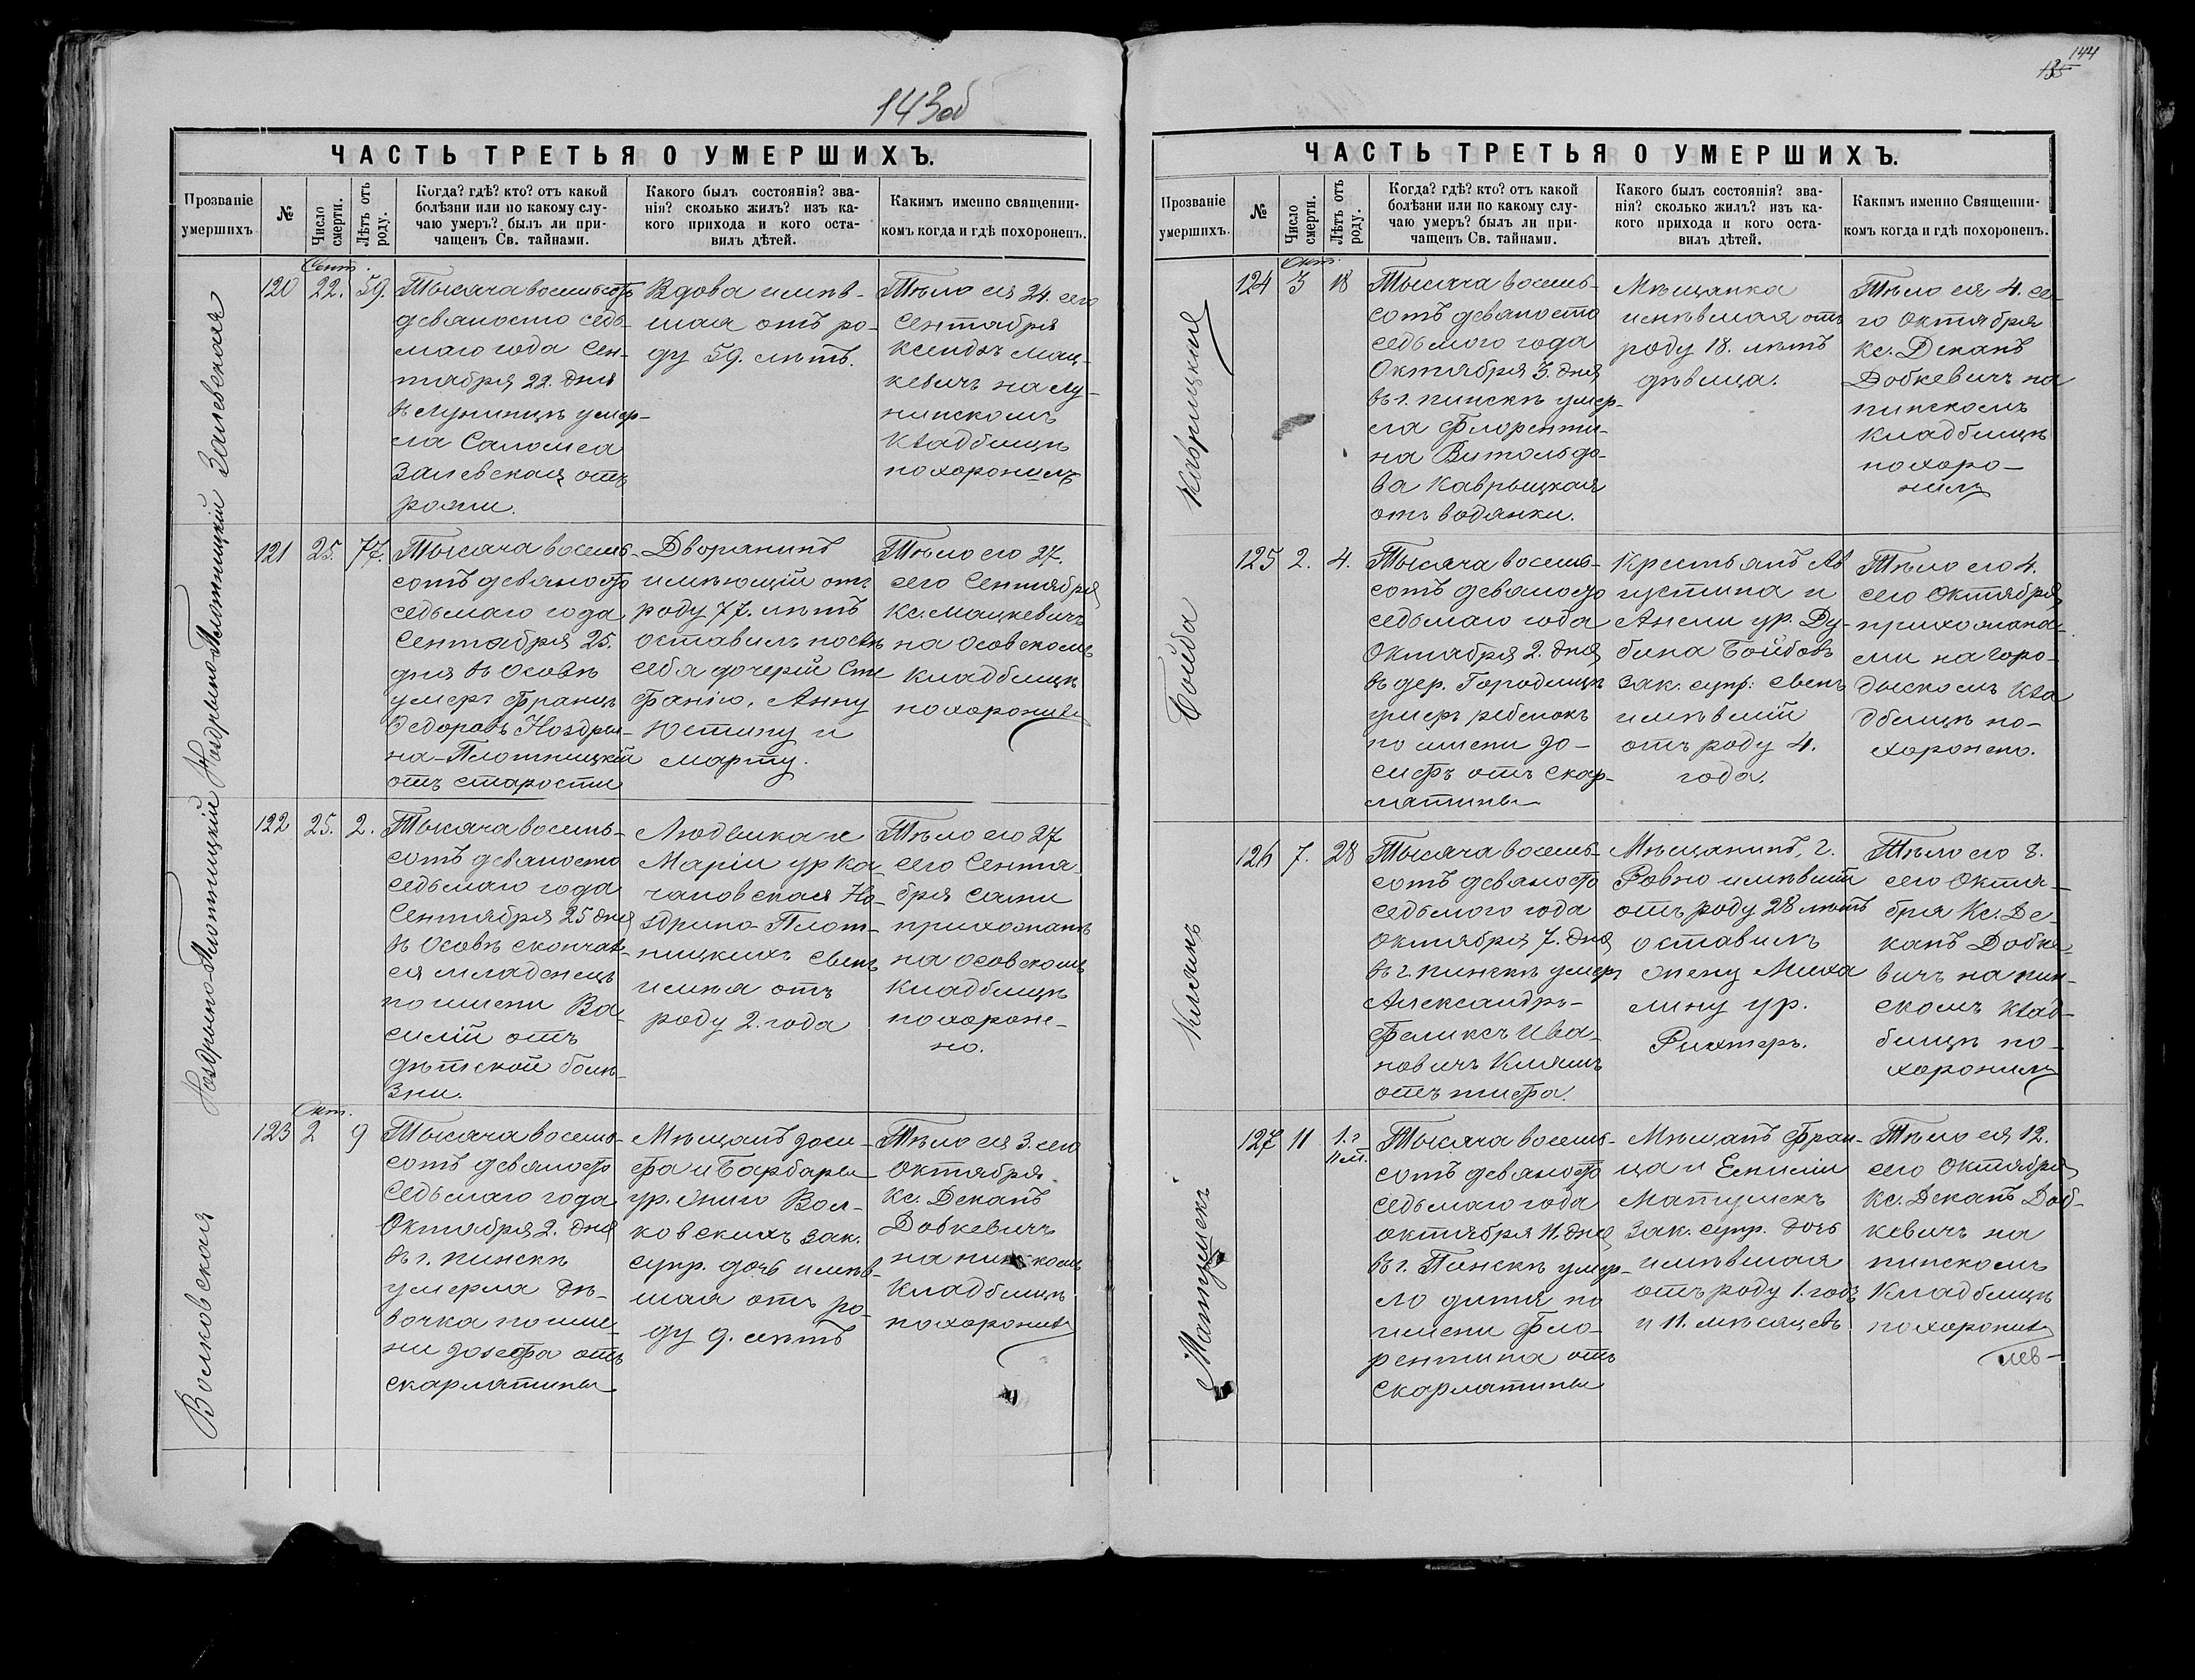 143об
ЧАСТЬ ТРЕТЬЯ О УМЕРШИХЪ.
Прозваніе умершихъ
№
Число смерти.
Лѣтъ отъ роду.
Когда? гдѣ? кто? отъ какой
болѣзни или по какому слу-
чаю умеръ? былъ ли при-
чащенъ Св. тайнами.
Какого былъ состоянія? зва-
нія? сколько жилъ? изъ ка-
кого прихода и кого оста-
вилъ дѣтей.
Какимъ именно священни-
комъ когда и гдѣ похороненъ.
Залевская
120
Сент.
22.
59.
Тысяча восемьсотъ
девяносто седь-
маго года Сен-
тября 22. дня
въ Лунинцѣ умер-
ла Саломеа
Залевская отъ
рожи.
Вдова имѣв-
шая отъ ро-
ду 59. лѣтъ.
Тѣло ея 24. сего
Сентября
Ксендзъ Мац-
кевичъ на Лу-
нинскомъ
Кладбищѣ
похоронилъ
Ноздрыно-Плотницкій
121
25.
77.
Тысяча восемь-
сотъ девяносто
седьмаго года
Сентября 25.
дня въ Осовѣ
умеръ Францъ
Ѳедоровъ Ноздры-
на-Плотницкій
отъ старости
Дворянинъ
имѣющій отъ
роду 77. лѣтъ
оставилъ послѣ
себя дочерій Сте
фанію, Анну
Юстину и
Марту.
Тѣло его 27.
сего Сентября
Кс. Мацкевичъ
на Осовскомъ
Кладбищѣ
похоронилъ
Ноздрыно-Плотницкій
122
25.
2.
Тысяча восемь-
сотъ девяносто
седьмаго года
Сентября 25 дня
въ Осовѣ скончал-
ся младенецъ
по имени Ва-
силій отъ
дѣтской болѣ-
зни.
Людвика и
Маріи ур Ка-
чановская Но-
здрино-Плот-
ницкихъ сынъ
имѣя отъ
роду 2. года
Тѣло его 27
сего Сентя-
бря сами
прихожане
на Осовскомъ
Кладбищѣ
похороне-
но.
Волковская
123
Окт.
2
9
Тысяча восемь-
сотъ девяносто
седьмаго года
Октября 2. дня
въ г. Пинскѣ
умерла дѣ-
вочка по име-
ни Іозефа отъ
скарлатины
Мѣщанъ Іоси-
фа и Барбары
ур. Волковскихъ зак.
супр. дочь имѣв-
шая отъ ро-
ду 9. лѣтъ
Тѣло ея 3. сего
Октября
Кс. Деканъ
Довкевичъ
на пинскомъ
Кладбищѣ
похоронилъ
144
135
ЧАСТЬ ТРЕТЬЯ О УМЕРШИХЪ.
Прозваніе умершихъ.
№
Число смерти.
Лѣтъ отъ роду.
Когда? гдѣ? кто? отъ какой
болѣзни или по какому слу-
чаю умеръ? былъ ли при-
чащенъ Св. тайнами.
Какого былъ состоянія? зва-
нія? сколько жилъ? изъ ка-
кого прихода и кого оста-
вилъ дѣтей.
Какимъ именно Священни-
комъ когда и гдѣ похороненъ.
124
Окт.
3
18
Тысяча восемь-
сотъ девяносто
седьмого года
Октября 3. дня
въ г. пинскѣ умер-
ла Флоренти-
на Витольдо-
ва Каврыцкая
отъ водянки.
Мѣщанка
имѣвшая отъ
роду 18. лѣтъ
дѣвица.
Тѣло ея 4. се-
го Октября
Кс. Деканъ
Добкевичъ на
пинскомъ
Кладбищѣ
похоро-
нилъ
Бойба
125
2.
4.
Тысяча восемь-
сотъ девяносто
седьмаго года
Октября 2. дня
въ дер. Городищѣ
умеръ ребенокъ
по имени Іо-
сифъ отъ скар-
латины
Крестьянъ Ав
густина и
Анели ур. Ду-
бина Бойбовъ
зак. супр: сынъ
имѣвшій
отъ роду 4.
года.
Тѣло его 4.
сего Октября
прихожана-
ми на Горо-
дыскомъ Кла
дбищѣ по-
хоронено.
Клямъ
126
7.
28
Тысяча восемь-
сотъ девяносто
седьмого года
Октября 7. дня
въ г. пинскѣ умеръ
Александръ-
Феликсъ Ива-
новичъ Клямъ
отъ тифа.
Мѣщанинъ, г.
Ровно имѣвшій
отъ роду 28 лѣтъ
оставилъ
жену Миха
лину ур.
Рихтеръ.
Тѣло его 8.
сего Октя-
бря Кс. Де-
канъ Добке-
вичъ на пин-
скомъ Клад-
бищѣ по-
хоронилъ
Матушекъ
127
11
1. г
11 м.
Тысяча восемь-
сотъ девяносто
седьмаго года
октября 11. дня
въ г. Пинскѣ умер-
ло дитя по
имени Фло-
рентина отъ
Скарлатины
Мѣщанъ Фран-
ца и
Матушекъ
зак. супр. дочь
имѣвшая
отъ роду 1. годъ
и 11. мѣсяцевъ
Тѣло ея 12.
сего Октября
Кс. Деканъ Доб-
кевичъ на
пинскомъ
Кладбищѣ
похоронилъ